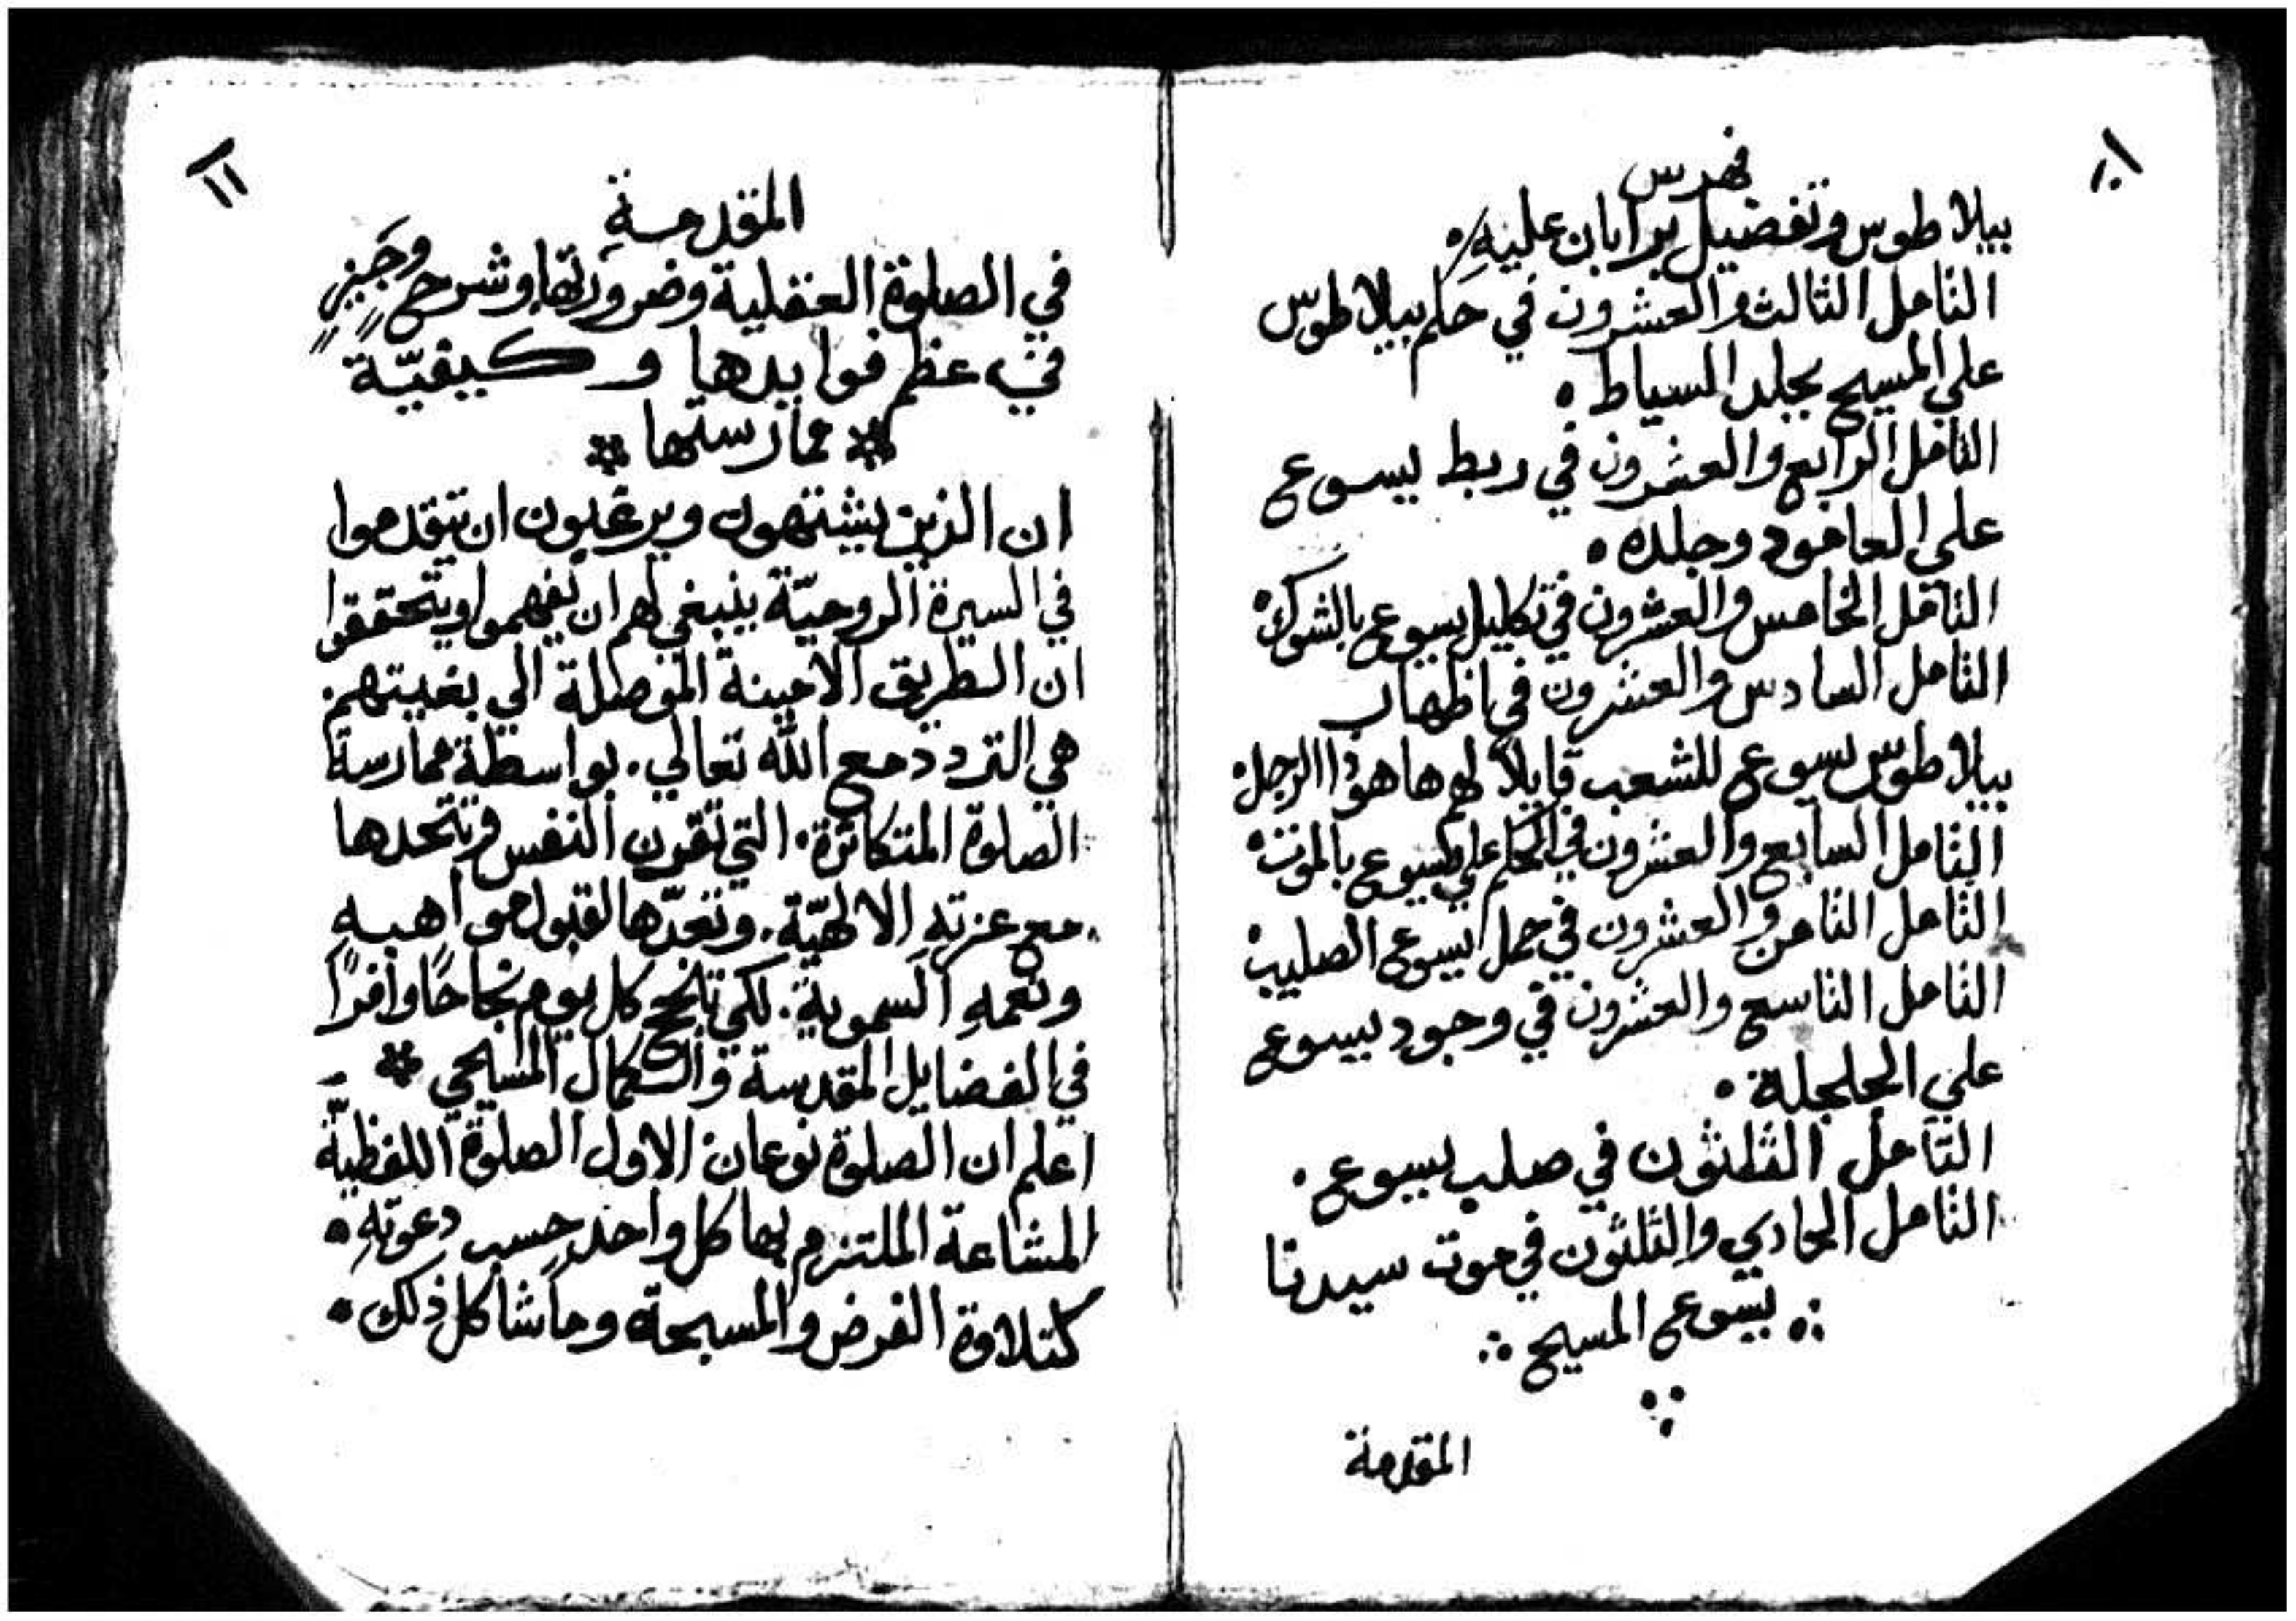 ١٠
فهرس
بيلاطوس وتفضيل برابان عليهِ
التامل الثالث والعشرون في حكم بيلاطوس
علي المسيح بجلد السياط
التامل الرابع والعشرون في ربط يسوع
علي العامود وجلده
التامل الخامس والعشرون في تكليل يسوع بالشوك
التامل السادس والعشرون في اظهار
بيلاطوس يسوع للشعب قايلاً لهم ها هوذا الرجل
التامل السابع والعشرون في الحكم علي يسوع بالموت
التامل الثامن والعشرون في حمل يسوع الصليب
التامل التاسع والعشرون في وجود يسوع
علي الجلجلة
التامل الثلثون في صلب يسوع
التامل الحادي والثلثون في موت سيدنا
يسوع المسيح
المقدمة
١١
المقدمة
في الصلوة العقلية وضرورتها وشرح وجيز
في عظم فوايدها وكيفيّة
ممارستها
ان الذين يشتهون ويرغبون ان يتقدموا
في السيرة الروحيّة ينبغي لهم ان يفهموا ويتحققوا
ان الطريق الامينة الموصلة الي بغيتهم
هي التردد مع الله تعالي. بواسطة ممارسة
الصلوة المتكاثرة. التي تقرن النفس وتتحدها
مع عزتهِ الالهيّة. وتعدّها لقبول مواهبهِ
ونعمهِ السموية. لكي تنجح كل يوم نجاحًا وافرًا
في الفضايل المقدسة والكمال المسيحي
اعلم ان الصلوة نوعان الاول الصلوة اللفظيّة
المشاعة الملتزم بها كل واحد حسب دعوتهِ
كتلاوة الفرض والمسبحة وما شاكل ذلك